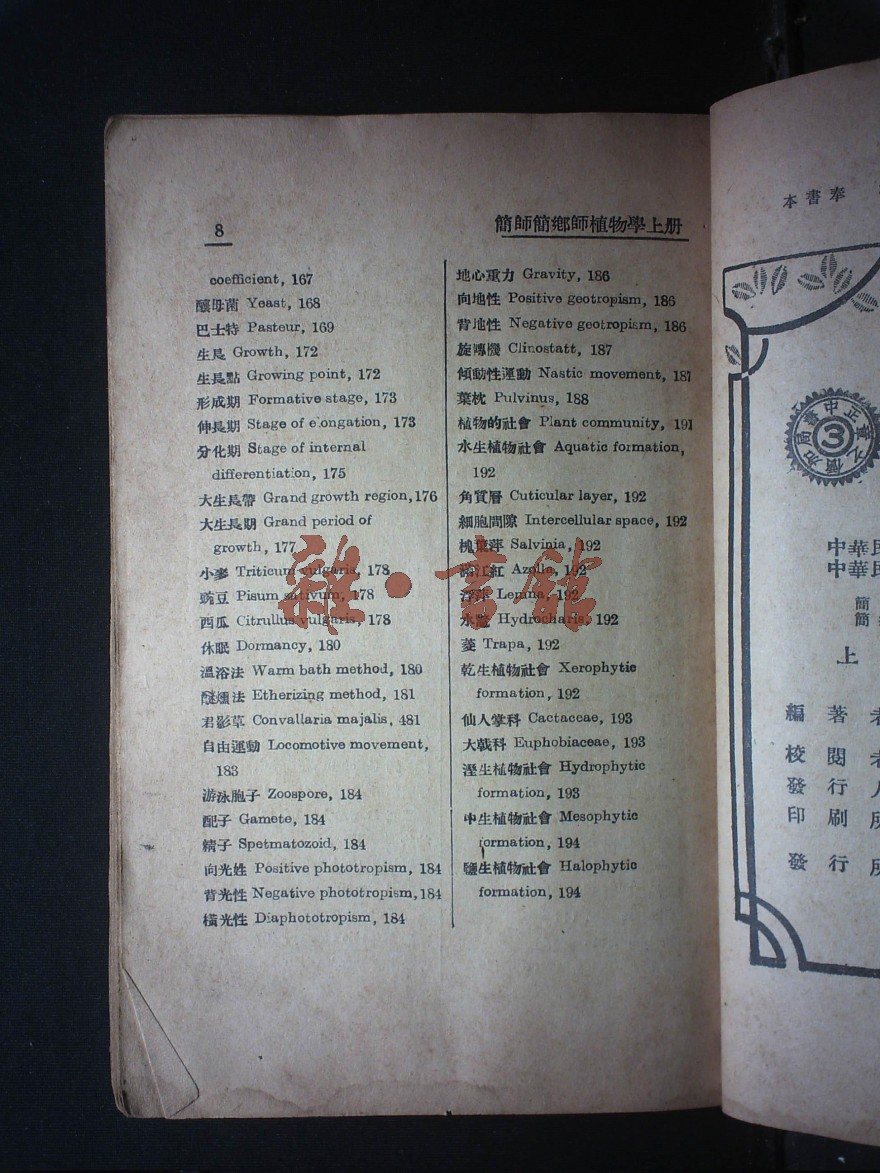 8
簡師簡鄉師植物學上册
coefficient, 167
釀母菌 Yeast, 168
巴士特 Pasteur, 169
生長 Growth, 172
生長點 Growing point, 172
形成期 Formative stage, 173
伸長期 Stage of elongation, 173
分化期 Stage of internal
differentiation, 175
大生長帶 Grand growth region, 176
大生長期 Grand period of
growth, 177
小麥 Triticum vulgaris, 178
豌豆 Pisum sativum, 178
西瓜 Citrullus vulgaris, 178
休眠 Dormancy, 180
溫浴法 Warm bath method, 180
醚燻法 Etherizing method, 181
君影草 Convallaria majalis, 481
自由運動 Locomotive movement,
183
游泳胞子 Zoospore, 184
配子 Gamete, 184
精子 Spetmatozoid, 184
向光姓 Positive phototropism, 184
背光性 Negative phototropism, 184
橫光性 Diaphototropism, 184
地心重力 Gravity, 186
向地性 Positive geotropism, 186
背地性 Negative geotropism, 186
旋轉機 Clinostatt, 187
傾動性運動 Nastic movement, 187
葉枕 Pulvinus, 188
植物的社會 Plant community, 191
水生植物社會 Aquatic formation,
192
角質層 Cuticular layer, 192
細胞間隙 Intercellular space, 192
槐葉萍 Salvinia, 192
滿江紅 Azolla, 192
浮萍 Lemna, 192
水鼈 Hydrocharis, 192
菱 Trapa, 192
乾生植物社會 Xerophytic
formation, 192
仙人掌科 Cactaceae, 193
大戟科 Euphobiaceae, 193
溼生植物社會 Hydrophytic
formation, 193
中生植物社會 Mesophytic
formation, 194
鹽生植物社會 Halophytic
formation, 194
雜·書館
本書奉
正中書局
3
中華民
中華民
簡
簡
上
編著者
校閱者
發行人
印刷所
發行所